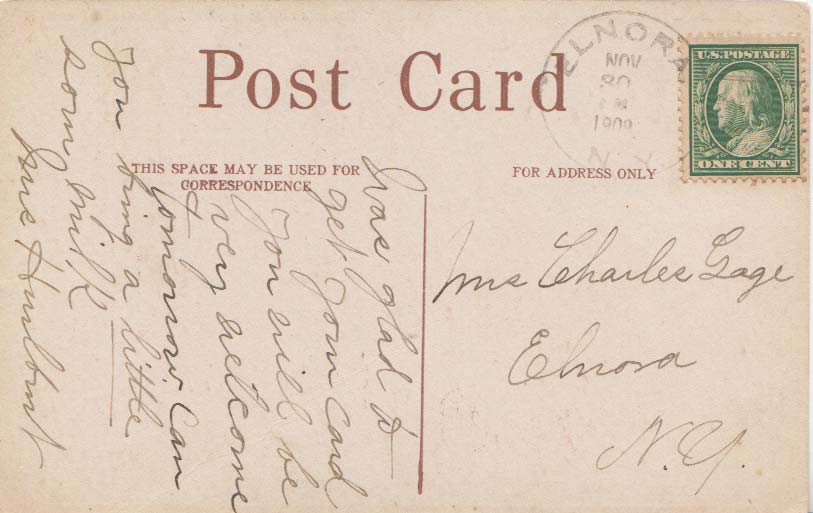 Post Card
ELNORA
NOV
30
1909
N.Y.
U.S. POSTAGE
ONE CENT
THIS SPACE MAY BE USED FOR
CORRESPONDENCE
FOR ADDRESS ONLY
I was glad to
get your card
You will be
very welcome
tomorrow Can
You bring a little
sour milk
Mrs Hurlburt
Mrs Charles Gage
Elnora
N.Y.